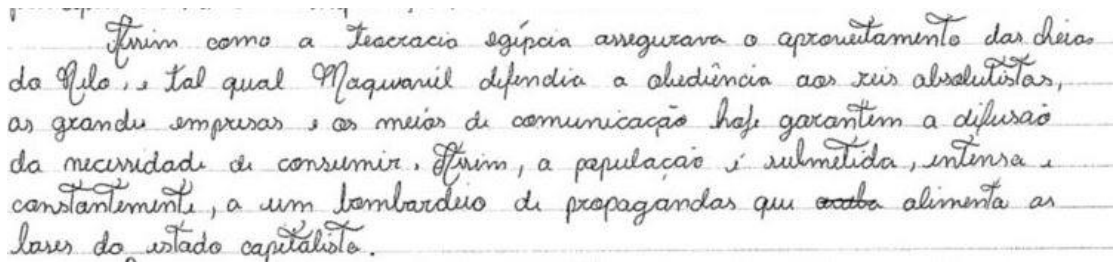 Assim como a teocracia egípcia assegurava o aproveitamento das cheias
do Nilo, e tal qual Maquiavel defendia a obediência aos reis absolutistas,
as grandes empresas e os meios de comunicação hoje garantem a difusão
da necessidade de consumir. Assim, a população é submetida, intensa e
constantemente, a um bombardeio de propagandas que alimenta as
bases do estado capitalista.